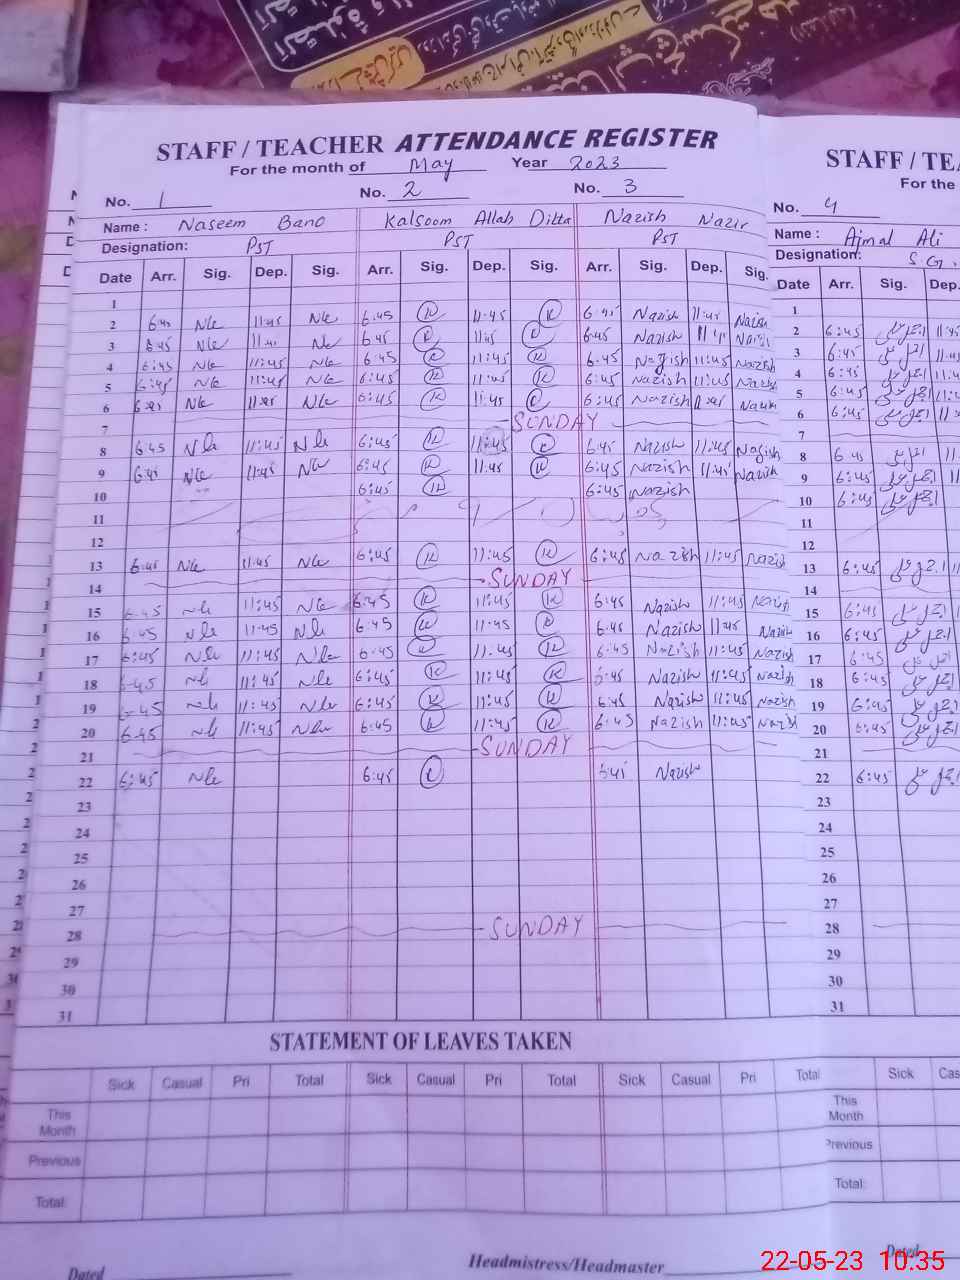 STAFF / TEACHER ATTENDANCE REGISTER
For the month of May Year 2023
No. 1 No. 2 No. 3
Name : Naseem Bano Kalsoom Allah Ditta Nazish Nazir
Designation: PST PST PST
Date Arr. Sig. Dep. Sig. Arr. Sig. Dep. Sig. Arr. Sig. Dep. Sig.
1
2 6:45 Nle 11:45 Nle 6:45 K 11:45 K 6:45 Nazish 11:45 Nazish
3 6:45 Nle 11:45 Nle 6:45 K 11:45 K 6:45 Nazish 11:45 Nazish
4 6:45 Nle 11:45 Nle 6:45 K 11:45 K 6:45 Nazish 11:45 Nazish
5 6:45 Nle 11:45 Nle 6:45 K 11:45 K 6:45 Nazish 11:45 Nazish
6 6:45 Nle 11:45 Nle 6:45 K 11:45 K 6:45 Nazish 11:45 Nazish
7 SUNDAY
8 6:45 Nle 11:45 Nle 6:45 K 11:45 K 6:45 Nazish 11:45 Nazish
9 6:45 Nle 11:45 Nle 6:45 K 11:45 K 6:45 Nazish 11:45 Nazish
10 6:45 K 6:45 Nazish
11
12
13 6:45 Nle 11:45 Nle 6:45 K 11:45 K 6:45 Nazish 11:45 Nazish
14 SUNDAY
15 6:45 Nle 11:45 Nle 6:45 K 11:45 K 6:45 Nazish 11:45 Nazish
16 6:45 Nle 11:45 Nle 6:45 K 11:45 K 6:45 Nazish 11:45 Nazish
17 6:45 Nle 11:45 Nle 6:45 K 11:45 K 6:45 Nazish 11:45 Nazish
18 6:45 Nle 11:45 Nle 6:45 K 11:45 K 6:45 Nazish 11:45 Nazish
19 6:45 Nle 11:45 Nle 6:45 K 11:45 K 6:45 Nazish 11:45 Nazish
20 6:45 Nle 11:45 Nle 6:45 K 11:45 K 6:45 Nazish 11:45 Nazish
21 SUNDAY
22 6:45 Nle 6:45 K 6:45 Nazish
23
24
25
26
27
28 SUNDAY
29
30
31
STATEMENT OF LEAVES TAKEN
Sick Casual Pri Total Sick Casual Pri Total Sick Casual Pri Total
This Month
Previous
Total:
Dated Headmistress/Headmaster
STAFF / TEA
For the
No. 4
Name : Ajmal Ali
Designation: S.G.
Date Arr. Sig. Dep.
1
2 6:45 اجمل علی 11:45
3 6:45 اجمل علی 11:45
4 6:45 اجمل علی 11:4
5 6:45 اجمل علی 11:
6 6:45 اجمل علی 11
7
8 6:45 اجمل علی 11
9 6:45 اجمل علی 11
10 6:45 اجمل علی
11
12
13 6:45 اجمل علی
14
15 6:45 اجمل علی
16 6:45 اجمل علی
17 6:45 اجمل علی
18 6:45 اجمل علی
19 6:45 اجمل علی
20 6:45 اجمل علی
21
22 6:45 اجمل علی
23
24
25
26
27
28
29
30
31
Sick Cas
This Month
Previous
Total:
Dated
22-05-23 10:35